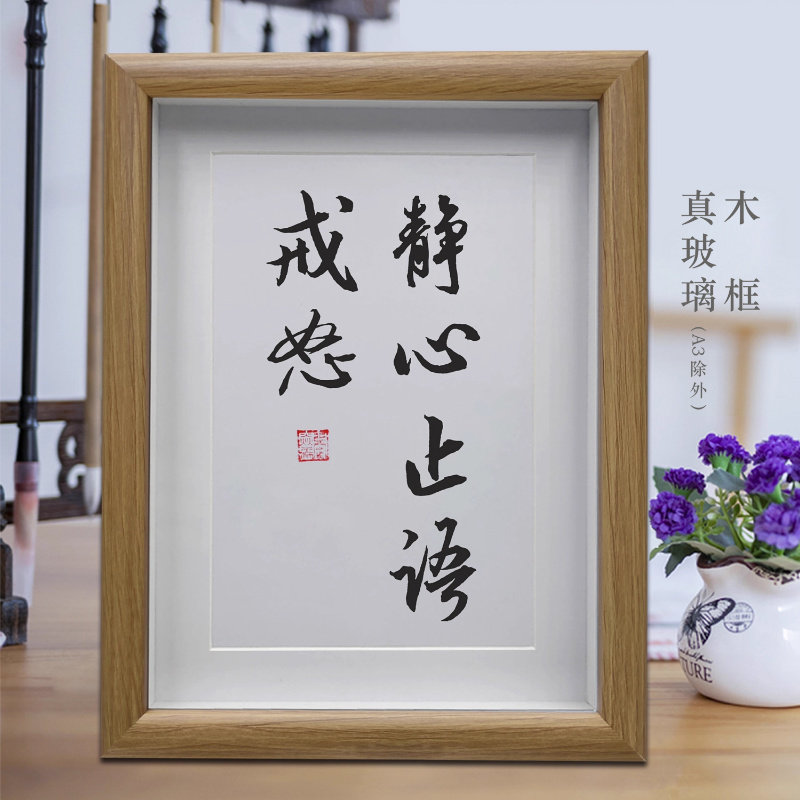 静心止语
戒怒
木框
真玻璃(A3除外)
TURE